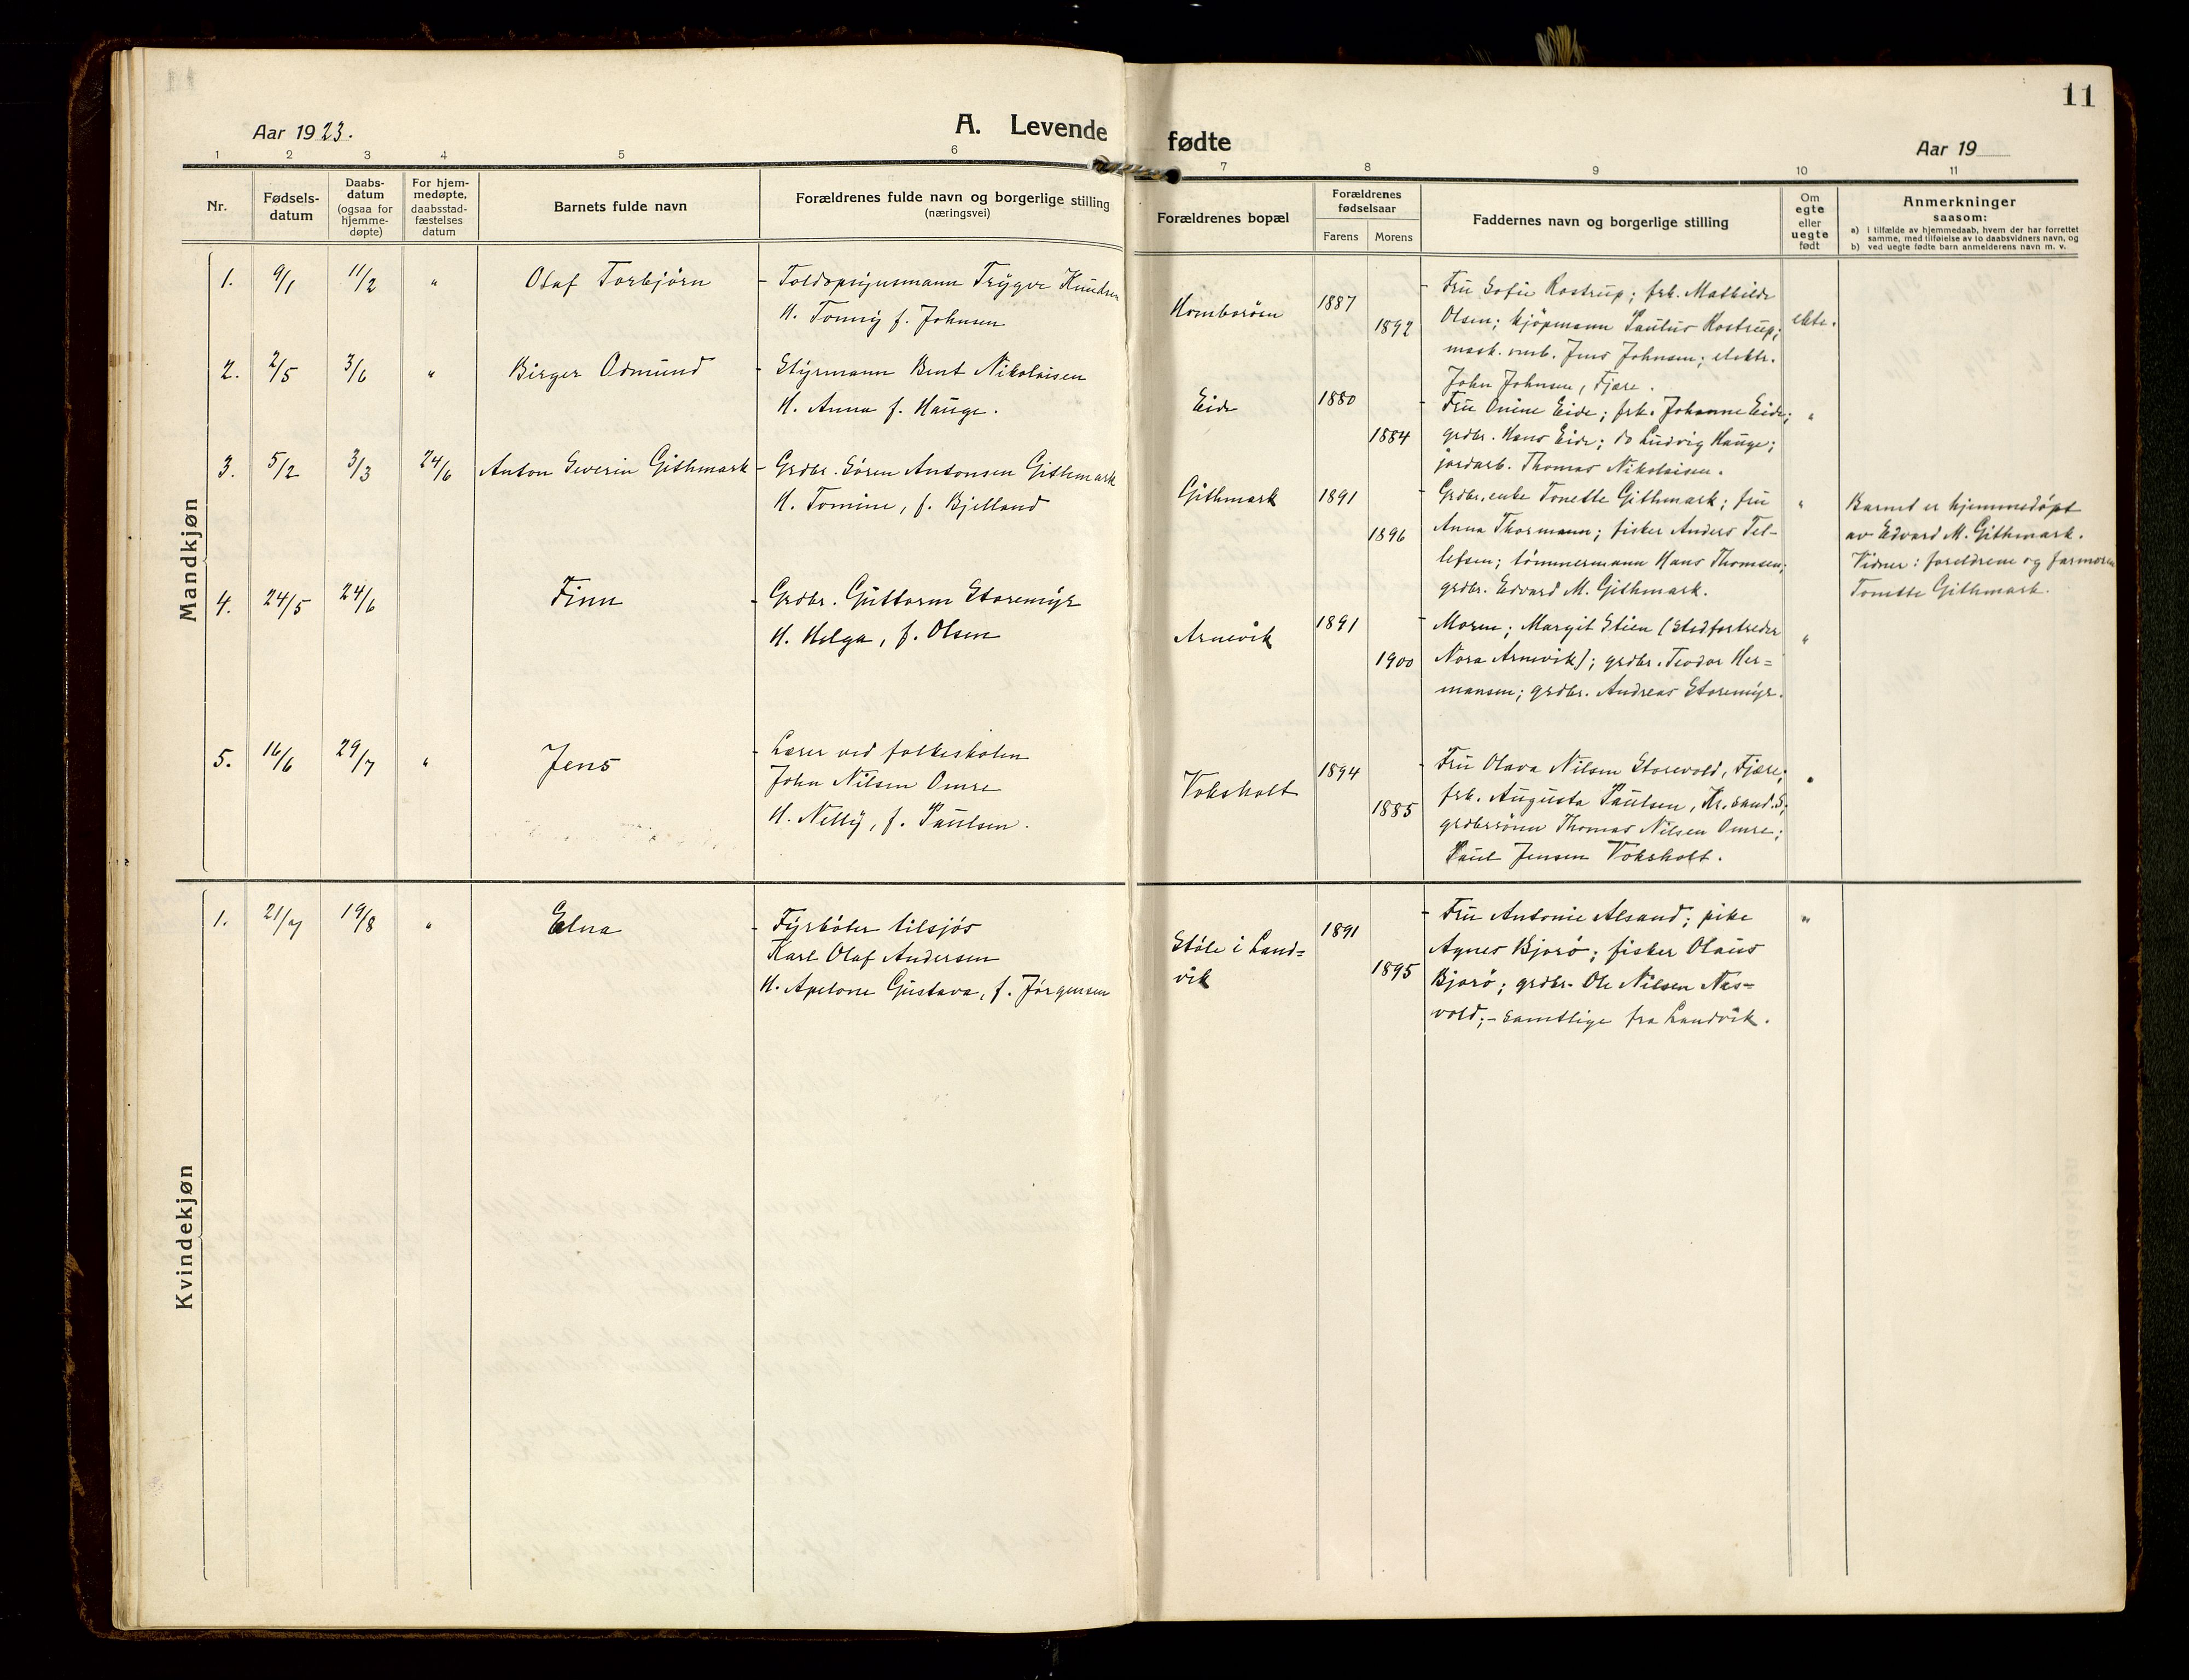 11
Aar 1923.
A. Levende
fødte
Aar 19
1 2 3 4 5 6
7 8 9 10 11
Nr.
Fødsels-
datum
Daabs-
datum
(ogsaa for
hjemme-
døpte)
For hjem-
medøpte,
daabsstad-
fæstelses
datum
Barnets fulde navn
Forældrenes fulde navn og borgerlige stilling
(næringsvei)
Forældrenes bopæl
Forældrenes
fødselsaar
Farens Morens
Faddernes navn og borgerlige stilling
Om
egte
eller
uegte
født
Anmerkninger
saasom:
a) i tilfælde av hjemmedaab, hvem der har forrettet
samme, med tilføielse av to daabsvidners navn, og
b) ved uegte fødte barn anmelderens navn m. v.
Mandkjøn
1. 9/1 11/2 " Olaf Torbjörn
- Toldopsynsmann Trygve Knudsen
H. Tonny f. Johnsen
Homborösn
1887
1892
- Fru Sofie Rostrup; frk. Mathilde
Olsen; kjöpmann Paulus Rostrup;
mask. omb. Jens Johnsen; elektr.
John Johnsen, Fjære.
ekte.
2. 2/5 3/6 " Birger Odmund
- Styrmann Bent Nikolaisen
H. Anna f. Hauge.
Eide
1880
1884
- Fru Onine Eide; frk. Johanne Eide;
grdbr. Hans Eide; do Ludvig Hauge;
jordarb. Thomas Nikolaisen.
"
3. 5/2 3/3 24/6 Anton Severin Githmark
- Grdbr. Sören Antonsen Githmark
H. Tomine, f. Bjelland
Githmark
1891
1896
- Grdbr.enke Tonette Githmark; fru
Anna Thormann; fisker Anders Tel-
lefsen; tömmermann Hans Thomsen;
grdbr. Edvard M. Githmark.
"
Barnet er hjemmedöpt
av Edvard M. Githmark.
Vidner: foreldrene og farmoren
Tonette Githmark.
4. 24/5 24/6 Finn
- Grdbr. Guttorm Storemyr
H. Helga, f. Olsen
Arnevik
1891
1900
- Moren; Margit Stien (Stedfortreder
Nora Arnevik); grdbr. Teodor Her=
mansen; grdbr. Andreas Storemyr.
"
5. 16/6 29/7 " Jens
- Lærer ved folkeskolen
John Nilsen Omre
H. Nelly, f. Paulsen.
Voksholt
1894
1885
- Fru Olava Nilsen Storevold, Fjære;
frk. Augusta Paulsen, Kr.sand.S;
grdbrsönn Thomas Nilsen Omre;
Paul Jensen Voksholt.
"
Kvindekjøn
1. 21/7 19/8 " Elna
- Fyrböter tilsjös
Karl Olaf Andersen
H. Apelone Gustava, f. Jörgensen
Støle i Land=
vik
1891
1895
- Fru Antonie Alsand; pike
Agnes Bjorö; fisker Olaus
Bjorö; grdbr. Ole Nilsen Næs=
vold; - samtlige fra Landvik.
"